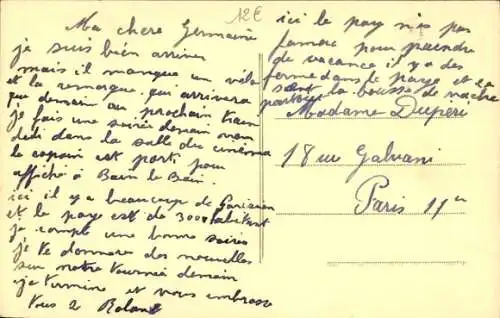 12€
Ma chere Germaine
je suis bien arrivee
mais il manque un vélo
et la remorque qui arrivera
que demain au prochain train
je fais une soirée demain
dans la salle du cinéma
le copain est parti pour
affiché à Bain le Bain.
ici il y a beaucoup de Parisien
et le paye est de 3000 habitant
je compte une bonne soirée
je te donnerai des nouvelles
sur notre tournée demain
je termine et vous embrasse
tous 2 Roland
ici le pay n'es pas
fameux pour prendre
de vacance il y a des
ferme dans le paye et ça
sent partout la bousse de vache
Madame Duperi
18 rue Galvani
Paris 17e